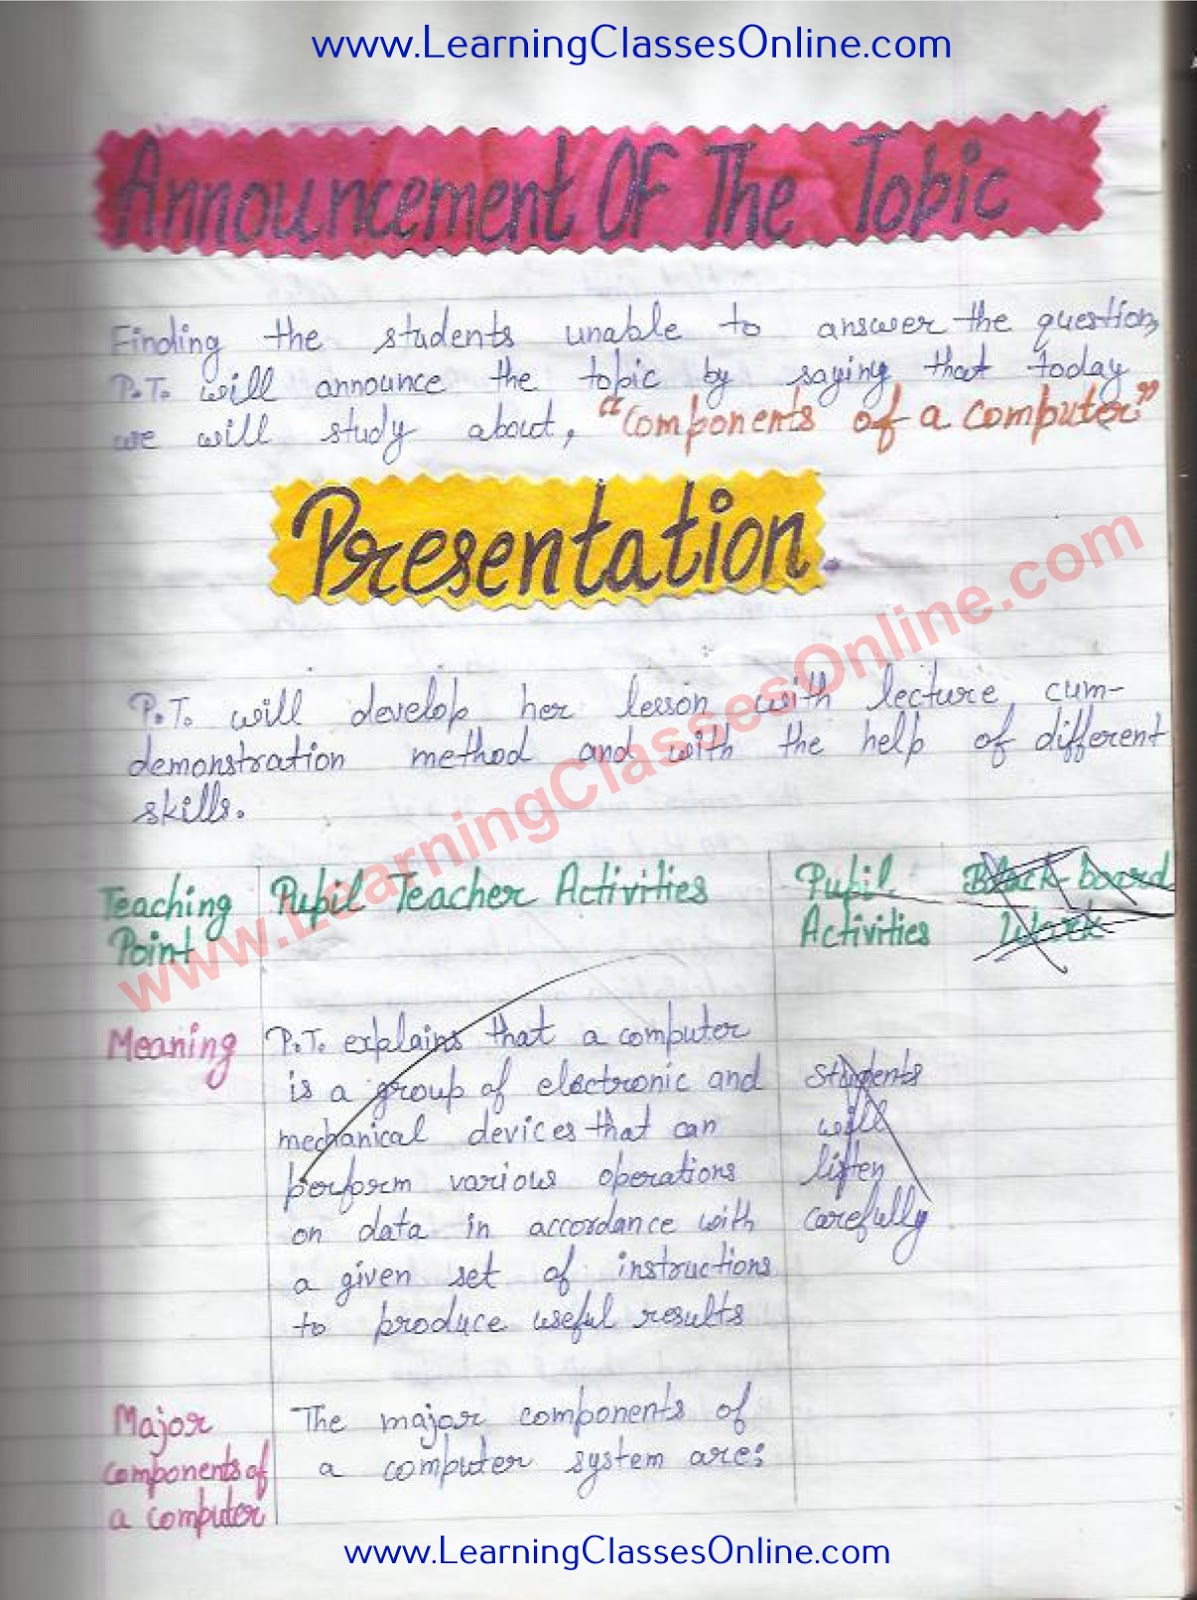 www.LearningClassesOnline.com
Announcement OF The Topic
Finding the students unable to answer the question,
P.T. will announce the topic by saying that today
we will study about, "Components of a computer"
Presentation.
P.T. will develop her lesson with lecture cum-
demonstration method and with the help of different
skills.
www.LearningClassesOnline.com
Teaching Point
Pupil Teacher Activities
Pupil Activities
Black-board Work
Meaning
P.T. explains that a computer
is a group of electronic and
mechanical devices that can
perform various operations
on data in accordance with
a given set of instructions
to produce useful results
Students
will
listen
carefully
Major
components of
a computer
The major components of
a computer system are:
www.LearningClassesOnline.com